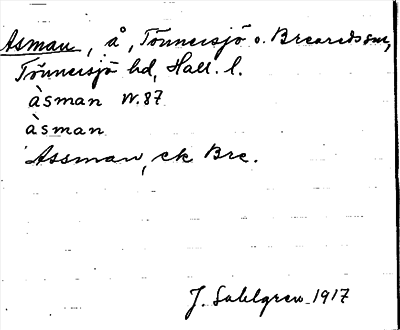 Asman, å, Tönnersjö o. Breareds snr,
Tönnersjö hd, Hall. l.
àsman W.87
àsman
Assman, ek Bre.
J. Sahlgren 1917